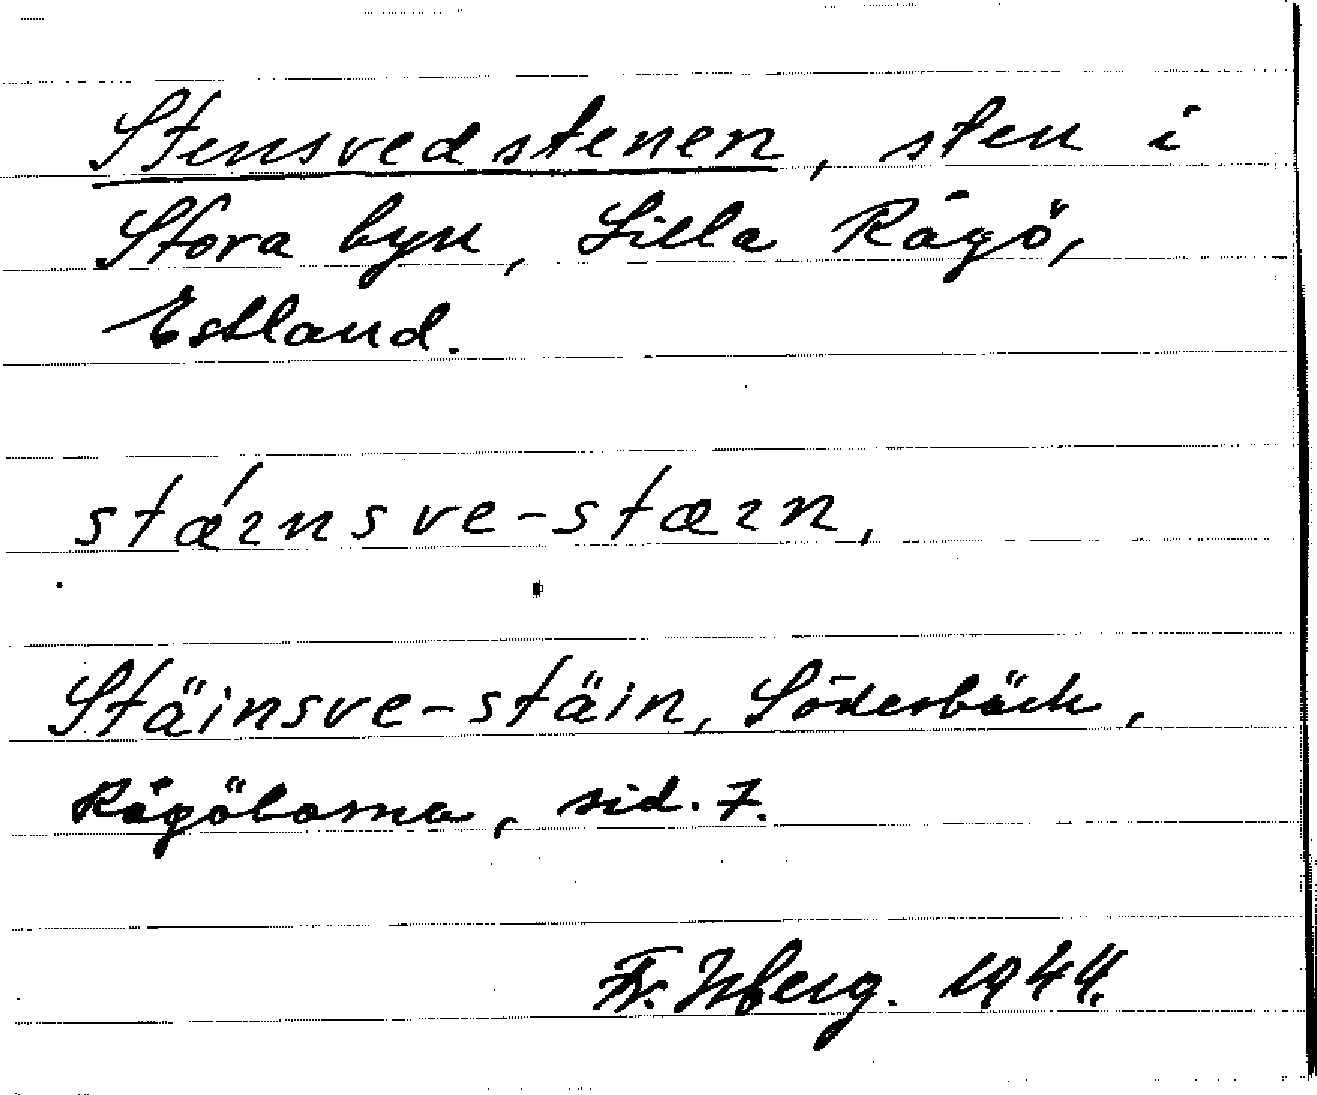 Stensvedstenen, sten i
Stora byn, Lilla Rågö,
Estland.
stǽɪnsve-stæɪn,
Stäinsve-stäin, Söderbäck,
Rågöborna, sid. 7.
Fr. Isberg. 1944.